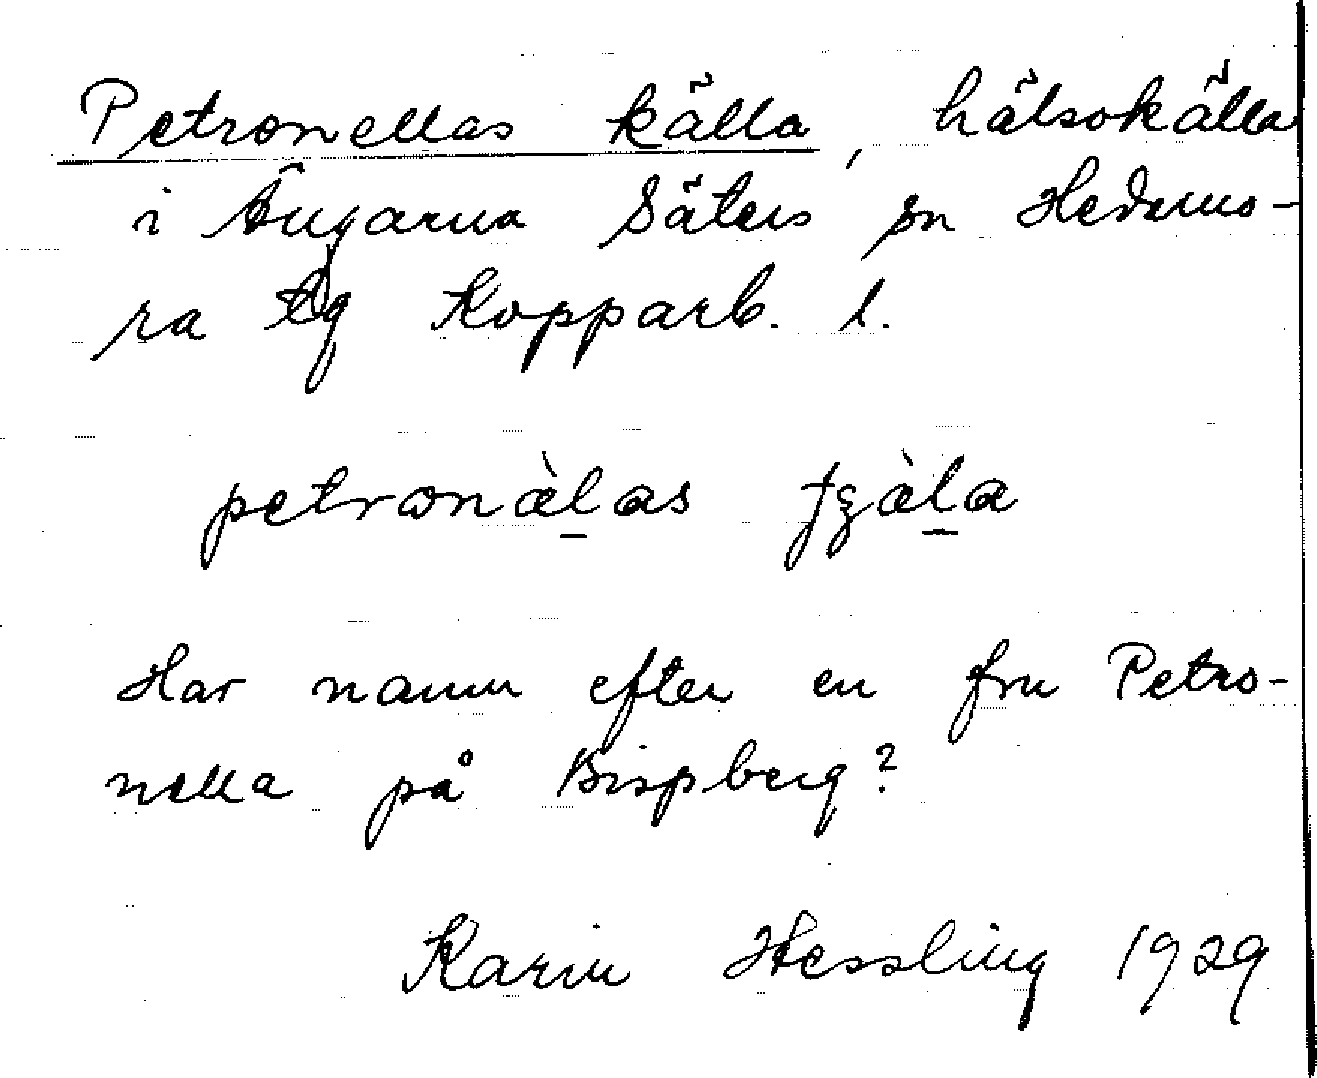 Petronellas källa, hälsokälla
i Ängarna Säters sn Hedemo-
ra tg Kopparb. l.
petronàl̲as ʈʂàl̲a
Har namn efter en fru Petro-
nella på Bispberg?
Karin Hessling 1929